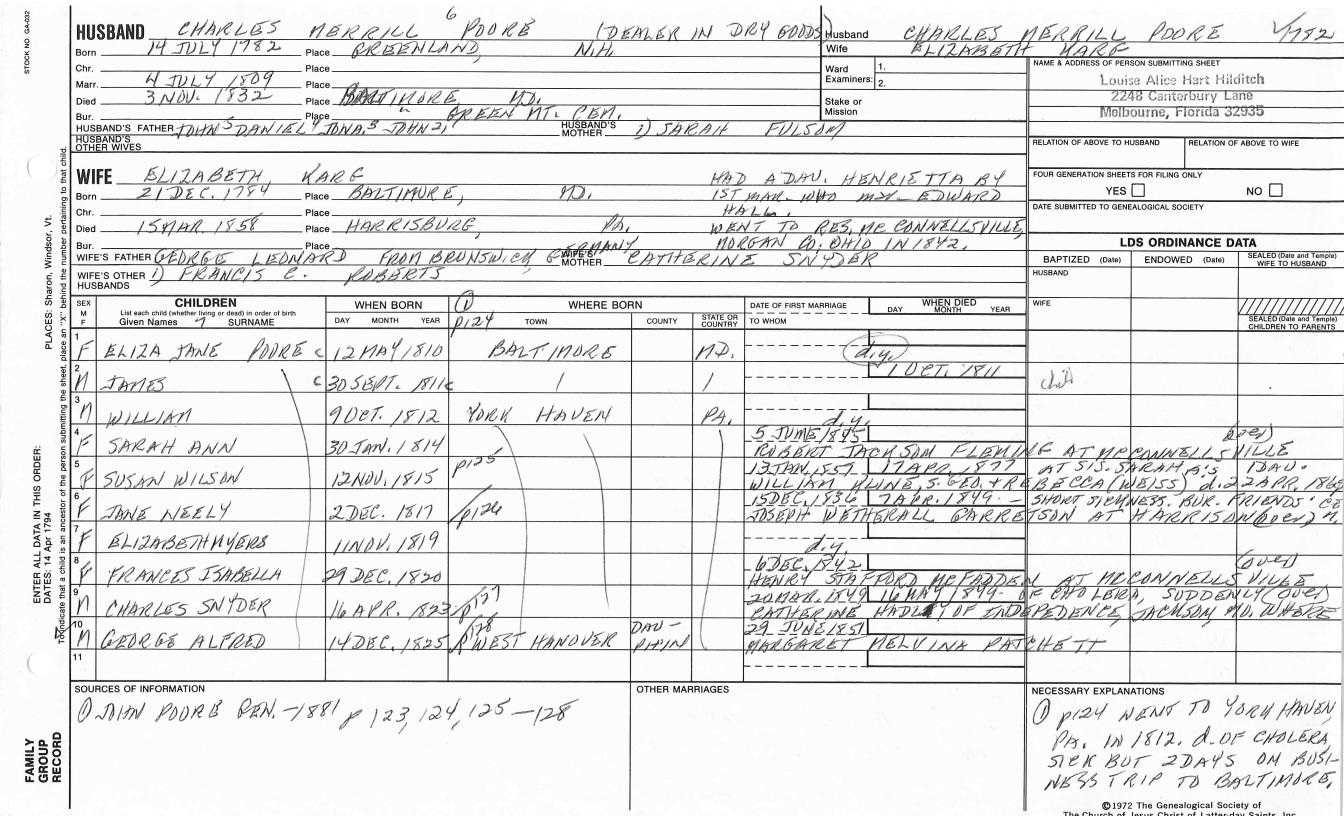 HUSBAND CHARLES MERRILL 6 POORE (DEALER IN DRY GOODS)
Born 14 JULY 1782 Place GREENLAND, N.H.
Chr. Place
Marr. 4 JULY 1809 Place
Died 3 NOV. 1832 Place BALTIMORE, MD.
Bur. Place GREEN MT. CEM.
HUSBAND'S FATHER JOHN 5 DANIEL 4 JONA. 3 JOHN 2, HUSBAND'S MOTHER 1) SARAH FULSOM
HUSBAND'S OTHER WIVES
Husband CHARLES MERRILL POORE 1782
Wife ELIZABETH KARG
Ward Examiners: 1.
2.
Stake or Mission
NAME & ADDRESS OF PERSON SUBMITTING SHEET
Louise Alice Hart Hilditch
2248 Canterbury Lane
Melbourne, Florida 32935
RELATION OF ABOVE TO HUSBAND RELATION OF ABOVE TO WIFE
FOUR GENERATION SHEETS FOR FILING ONLY
YES NO
DATE SUBMITTED TO GENEALOGICAL SOCIETY
WIFE ELIZABETH KARG HAD A DAU. HENRIETTA BY
Born 21 DEC. 1784 Place BALTIMORE, MD. 1ST MAR. WHO M. EDWARD
Chr. Place HALL.
Died 15 MAR. 1858 Place HARRISBURG, PA. WENT TO RES. MCCONNELLSVILLE,
Bur. Place MORGAN CO. OHIO IN 1842.
WIFE'S FATHER GEORGE LEONARD FROM BRUNSWICK, GERMANY WIFE'S MOTHER CATHERINE SNYDER
WIFE'S OTHER HUSBANDS 1) FRANCIS C. ROBERTS
LDS ORDINANCE DATA
BAPTIZED (Date) ENDOWED (Date) SEALED (Date and Temple) WIFE TO HUSBAND
HUSBAND
WIFE
SEALED (Date and Temple) CHILDREN TO PARENTS
SEX M F CHILDREN WHEN BORN 1 WHERE BORN DATE OF FIRST MARRIAGE WHEN DIED
List each child (whether living or dead) in order of birth
Given Names 7 SURNAME DAY MONTH YEAR p124 TOWN COUNTY STATE OR COUNTRY TO WHOM DAY MONTH YEAR
1 F ELIZA JANE POORE c 12 MAY 1810 BALTIMORE MD. d.y.
2 M JAMES c 30 SEPT. 1811 c 1 OCT. 1811 child
3 M WILLIAM 9 OCT. 1812 YORK HAVEN PA. d.y.
4 F SARAH ANN 30 JAN. 1814 5 JUNE 1845 (over)
ROBERT JACKSON FLEMING AT MCCONNELLSVILLE
5 F SUSAN WILSON 12 NOV. 1815 p125 13 JAN. 1857 17 APR. 1877 AT SIS. SARAH A'S 1 DAU.
WILLIAM KLINE, S. GEO. & REBECCA (WEISS) d. 22 APR. 1865
6 F JANE NEELY 2 DEC. 1817 p126 15 DEC. 1836 7 APR. 1849 - SHORT SICKNESS. BUR. FRIENDS' CE
JOSEPH WETHERALL GARRETSON AT HARRISON (over)
7 F ELIZABETH MYERS 1 NOV. 1819 d.y.
8 F FRANCES ISABELLA 29 DEC. 1820 6 DEC. 1842 (over)
HENRY STAFFORD MCFADDEN AT MCCONNELLSVILLE
9 M CHARLES SNYDER 16 APR. 1823 p127 20 MAR. 1849 16 MAY 1849 OF CHOLERA, SUDDENLY (over)
CATHERINE HADLEY OF INDEPENDENCE, JACKSON, MO. WHERE
10 M GEORGE ALFRED 14 DEC. 1825 p128 WEST HANOVER DAUPHIN 29 JUNE 1851
MARGARET MELVINA PATCHETT
11
SOURCES OF INFORMATION
1 JOHN POORE GEN. -1881 p 123, 124, 125-128
OTHER MARRIAGES
NECESSARY EXPLANATIONS
1 p124 WENT TO YORK HAVEN,
PA. IN 1812. d. OF CHOLERA,
SICK BUT 2 DAYS ON BUSI-
NESS TRIP TO BALTIMORE,
©1972 The Genealogical Society of
The Church of Jesus Christ of Latter-day Saints, Inc.
STOCK NO. GA-032
PLACES: Sharon, Windsor, Vt.
ENTER ALL DATA IN THIS ORDER:
DATES: 14 Apr 1794
To indicate that a child is an ancestor of the person submitting the sheet, place an "X" behind the number pertaining to that child.
FAMILY
GROUP
RECORD